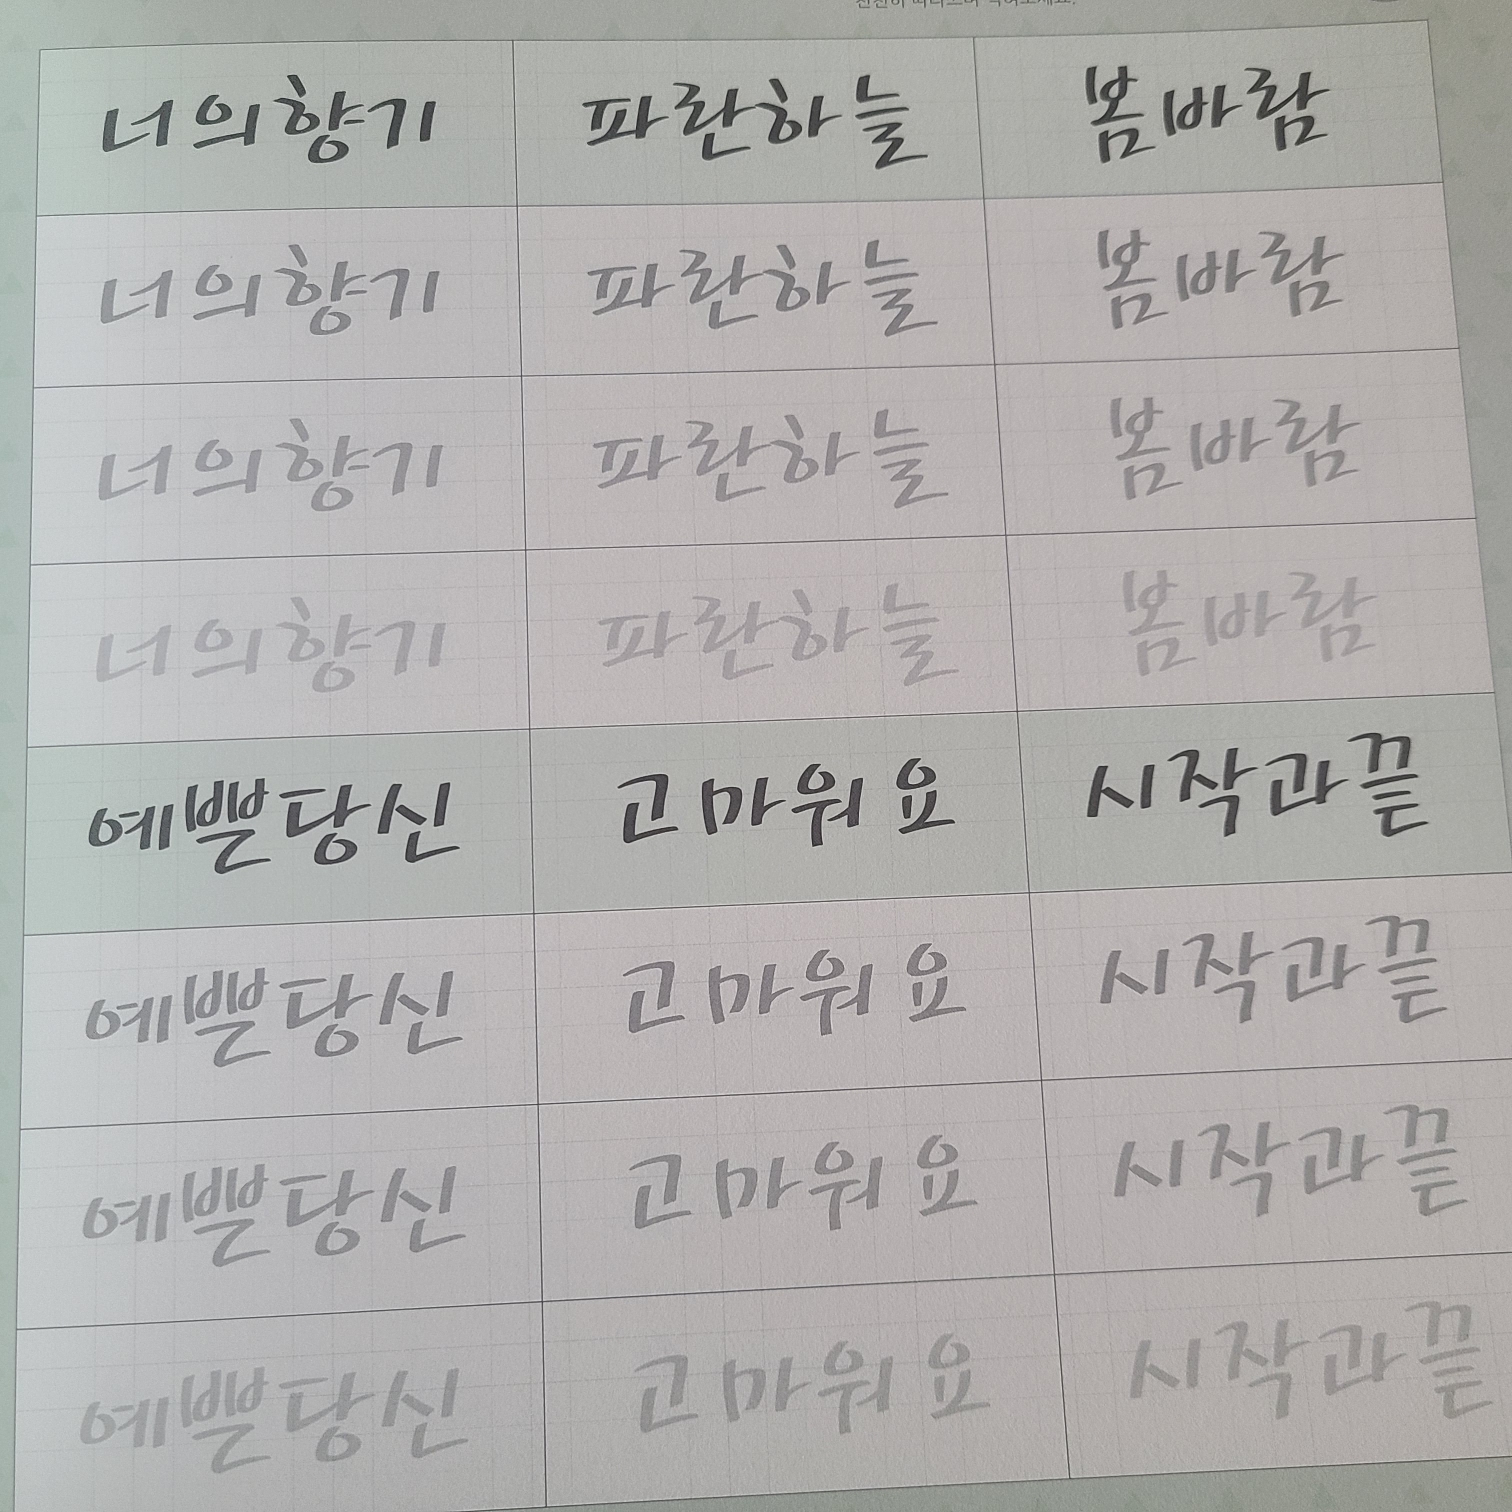 너의향기 파란하늘 봄바람
너의향기 파란하늘 봄바람
너의향기 파란하늘 봄바람
너의향기 파란하늘 봄바람
예쁠당신 고마워요 시작과끝
예쁠당신 고마워요 시작과끝
예쁠당신 고마워요 시작과끝
예쁠당신 고마워요 시작과끝